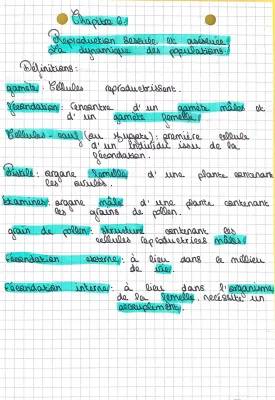 Chapitre 6:
Reproduction sexuée et asexuée
La dynamique des populations.
Définitions:
gamète: Cellules reproductrissent.
fécondation: rencontre d'un gamète mâles et
d'un gamète femelle.
Cellules-oeuf (ou zygote): première cellule
d'un individut issu de la
fécondation.
Pistile: organe femelle d'une plante contenant
les ovules.
Etamines: organe mâle d'une plante contenant
les grains de pollen.
grain de pollen: structure contenant les
cellules reproductrices mâles.
Fécondation externe: à lieu dans le millieu
de vie.
Fécondation interne: à lieu dans l'organisme
de la femelle. necéssite un
accouplement.